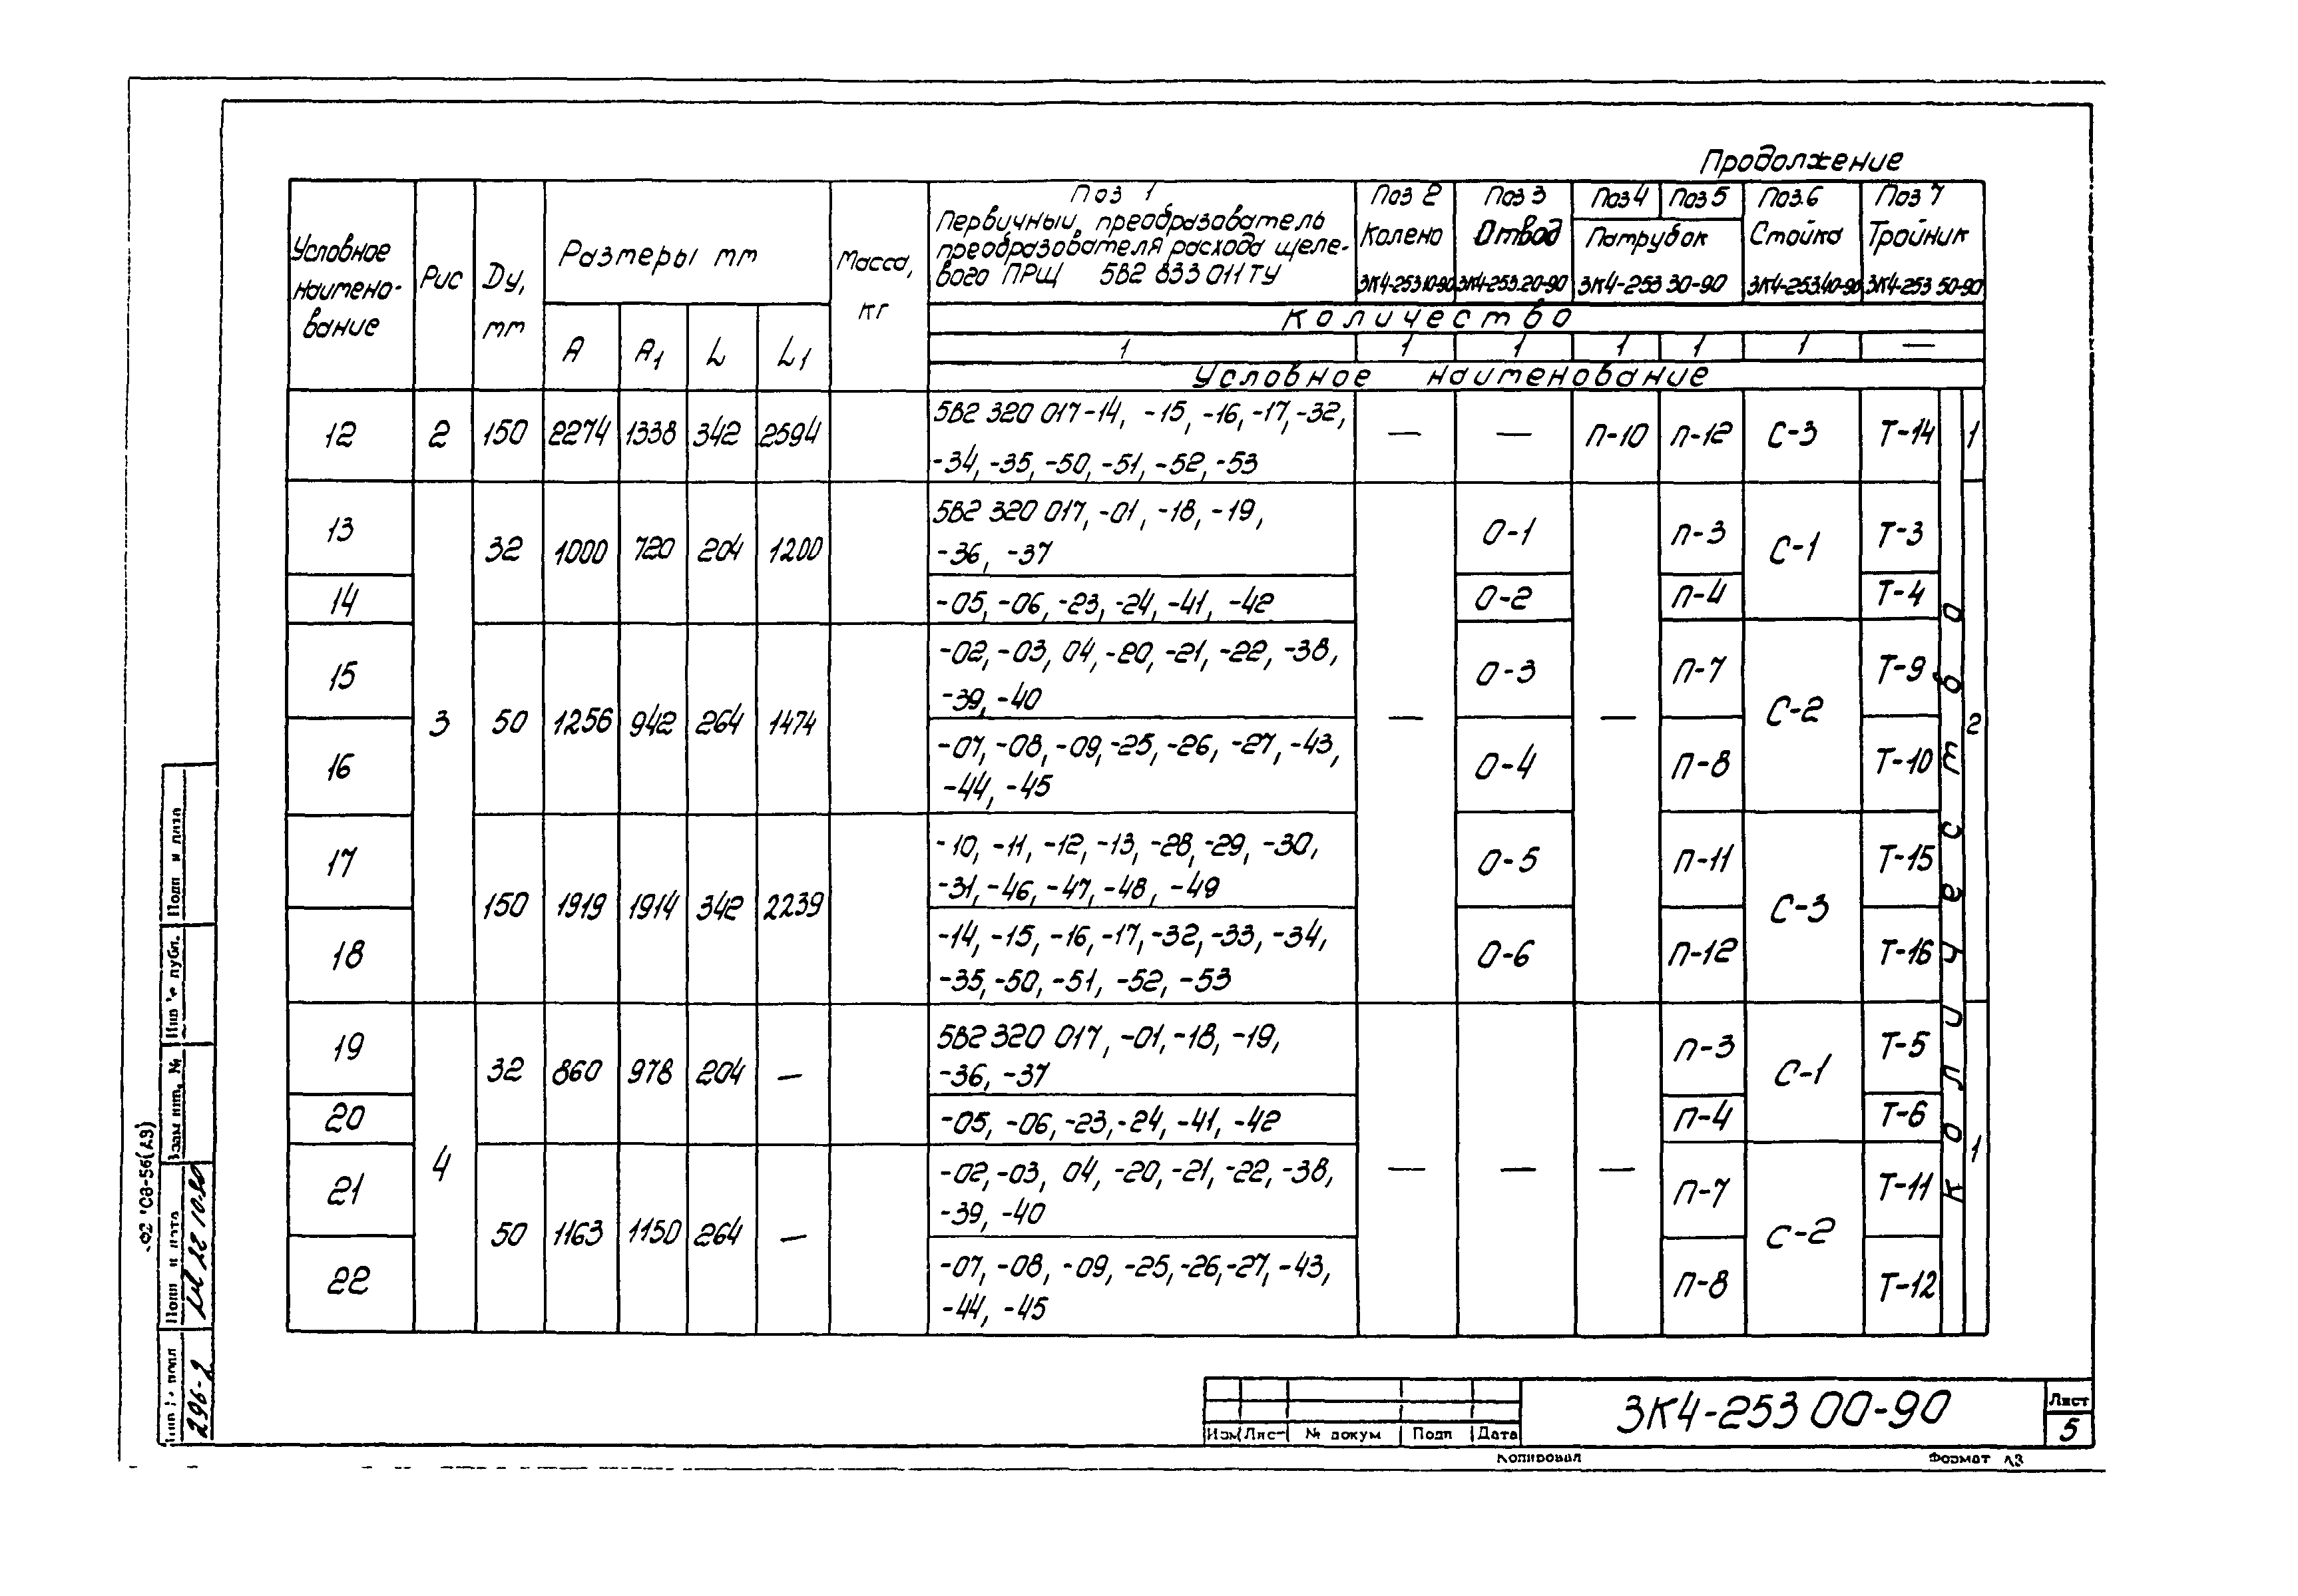 Продолжение
Условное наимено- вание | Рис | Dу, мм | Размеры мм | Масса, кг | Поз 1 | Поз 2 | Поз 3 | Поз 4 | Поз 5 | Поз.6 | Поз 7
Первичный преобразователь
преобразователя расхода щеле-
вого ПРЩ 5В2 833 011 ТУ
Колено | Отвод | Патрубок | Стойка | Тройник
3К4-253 10-90 | 3К4-253.20-90 | 3К4-253 30-90 | 3К4-253.40-90 | 3К4-253 50-90
А | А1 | L | L1
Количество
1 | 1 | 1 | 1 | 1 | 1 | —
Условное наименование
12 | 2 | 150 | 2274 | 1338 | 342 | 2594 | 5В2 320 017-14, -15, -16, -17, -32, | — | — | П-10 | П-12 | С-3 | Т-14 | 1
-34, -35, -50, -51, -52, -53
13 | 3 | 32 | 1000 | 720 | 204 | 1200 | 5В2 320 017, -01, -18, -19, | — | О-1 | — | П-3 | С-1 | Т-3 | 2
-36, -37
14 | -05, -06, -23, -24, -41, -42 | О-2 | П-4 | Т-4
15 | 50 | 1256 | 942 | 264 | 1474 | -02, -03, 04, -20, -21, -22, -38, | О-3 | П-7 | С-2 | Т-9
-39, -40
16 | -07, -08, -09, -25, -26, -27, -43, | О-4 | П-8 | Т-10
-44, -45
17 | 150 | 1919 | 1914 | 342 | 2239 | -10, -11, -12, -13, -28, -29, -30, | О-5 | П-11 | С-3 | Т-15
-31, -46, -47, -48, -49
18 | -14, -15, -16, -17, -32, -33, -34, | О-6 | П-12 | Т-16
-35, -50, -51, -52, -53
19 | 4 | 32 | 860 | 978 | 204 | — | 5В2 320 017, -01, -18, -19, | — | — | — | П-3 | С-1 | Т-5 | 1
-36, -37
20 | -05, -06, -23, -24, -41, -42 | П-4 | Т-6
21 | 50 | 1163 | 1150 | 264 | — | -02, -03, 04, -20, -21, -22, -38, | П-7 | С-2 | Т-11
-39, -40
22 | -07, -08, -09, -25, -26, -27, -43, | П-8 | Т-12
-44, -45
Подп и дата
Инв № дубл.
Взам инв. №
Подп и дата
22 10.90
Инв № подл
296-2
Изм Лист № докум Подп Дата
3К4-253 00-90
Лист
5
Копировал
Формат А3